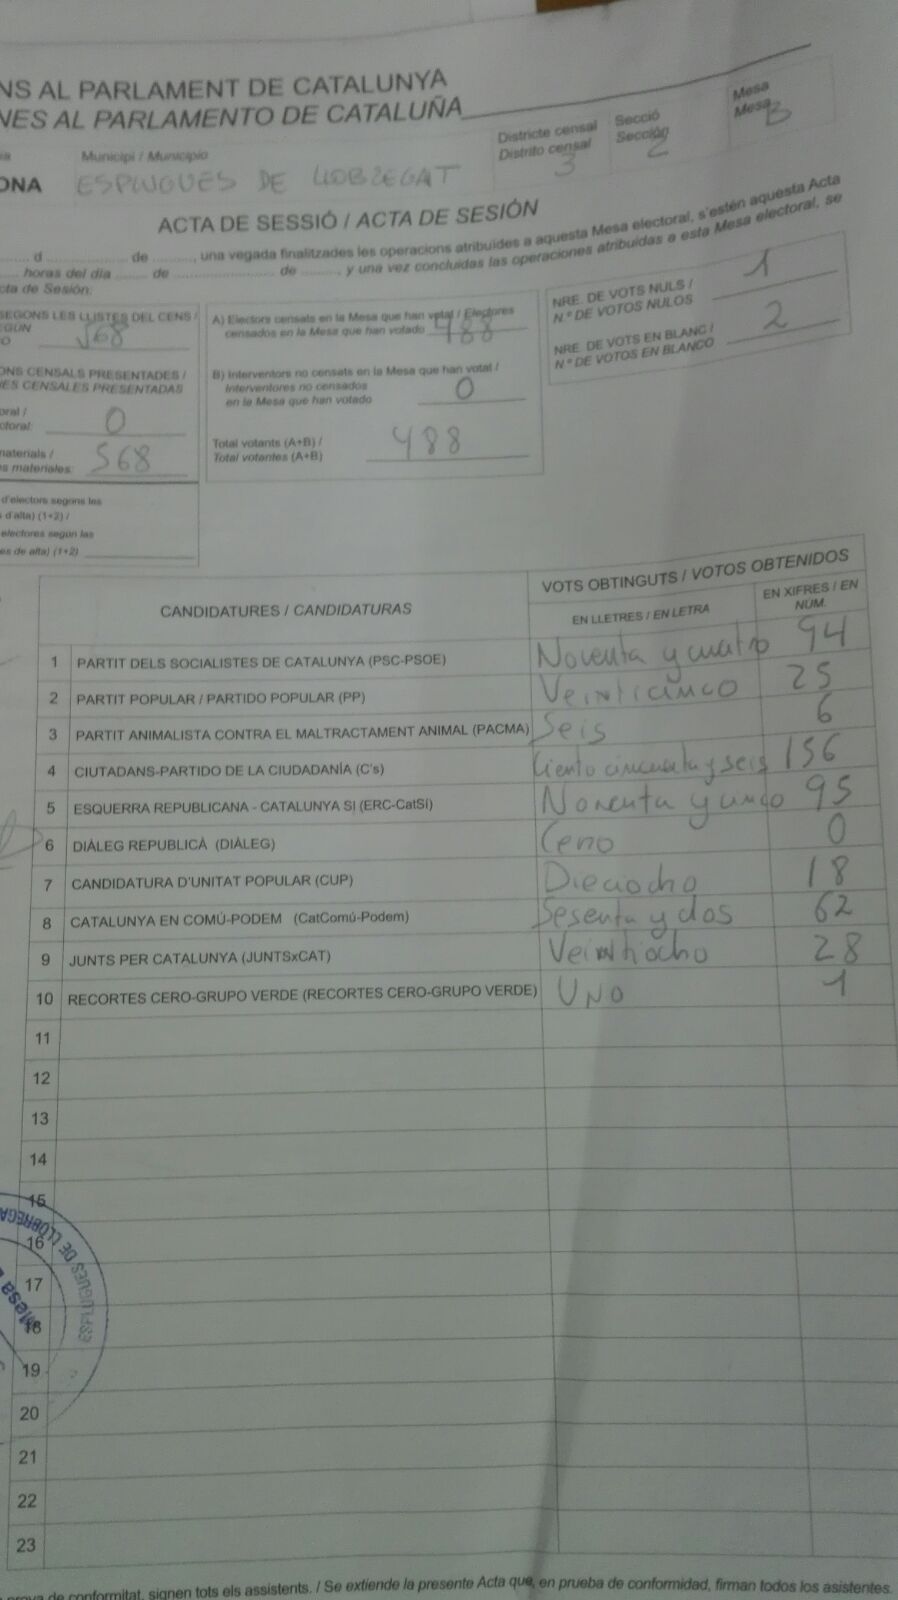 NS AL PARLAMENT DE CATALUNYA
NES AL PARLAMENTO DE CATALUÑA
Municipi / Municipio
ONA ESPLUGUES DE LLOBREGAT
Districte censal
Distrito censal 3
Secció
Sección 2
Mesa
Mesa B
ACTA DE SESSIÓ / ACTA DE SESIÓN
d de , una vegada finalitzades les operacions atribuïdes a aquesta Mesa electoral, s'estén aquesta Acta
horas del día de de , y una vez concluidas las operaciones atribuidas a esta Mesa electoral, se
cta de Sesión:
SEGONS LES LLISTES DEL CENS /
EGÚN
O 568
ONS CENSALS PRESENTADES /
NES CENSALES PRESENTADAS
oral /
ctoral: 0
materials /
s materiales: 568
d'electors segons les
s d'alta) (1+2) /
electores según las
es de alta) (1+2)
A) Electors censats en la Mesa que han votat / Electores
censados en la Mesa que han votado 488
B) Interventors no censats en la Mesa que han votat /
Interventores no censados
en la Mesa que han votado 0
Total votants (A+B) /
Total votantes (A+B) 488
NRE. DE VOTS NULS /
N.º DE VOTOS NULOS 1
NRE. DE VOTS EN BLANC /
N.º DE VOTOS EN BLANCO 2
CANDIDATURES / CANDIDATURAS
VOTS OBTINGUTS / VOTOS OBTENIDOS
EN LLETRES / EN LETRA
EN XIFRES / EN
NÚM.
1 PARTIT DELS SOCIALISTES DE CATALUNYA (PSC-PSOE) Noventa y cuatro 94
2 PARTIT POPULAR / PARTIDO POPULAR (PP) Veinticinco 25
3 PARTIT ANIMALISTA CONTRA EL MALTRACTAMENT ANIMAL (PACMA) Seis 6
4 CIUTADANS-PARTIDO DE LA CIUDADANÍA (C's) Ciento cincuenta y seis 156
5 ESQUERRA REPUBLICANA - CATALUNYA SÍ (ERC-CatSí) Noventa y cinco 95
6 DIÀLEG REPUBLICÀ (DIÀLEG) Cero 0
7 CANDIDATURA D'UNITAT POPULAR (CUP) Dieciocho 18
8 CATALUNYA EN COMÚ-PODEM (CatComú-Podem) Sesenta y dos 62
9 JUNTS PER CATALUNYA (JUNTSxCAT) Veintiocho 28
10 RECORTES CERO-GRUPO VERDE (RECORTES CERO-GRUPO VERDE) UNO 1
11
12
13
14
15
16
17
18
19
20
21
22
23
ESPLUGUES DE LLOBREGA
Mesa
prova de conformitat, signen tots els assistents. / Se extiende la presente Acta que, en prueba de conformidad, firman todos los asistentes.